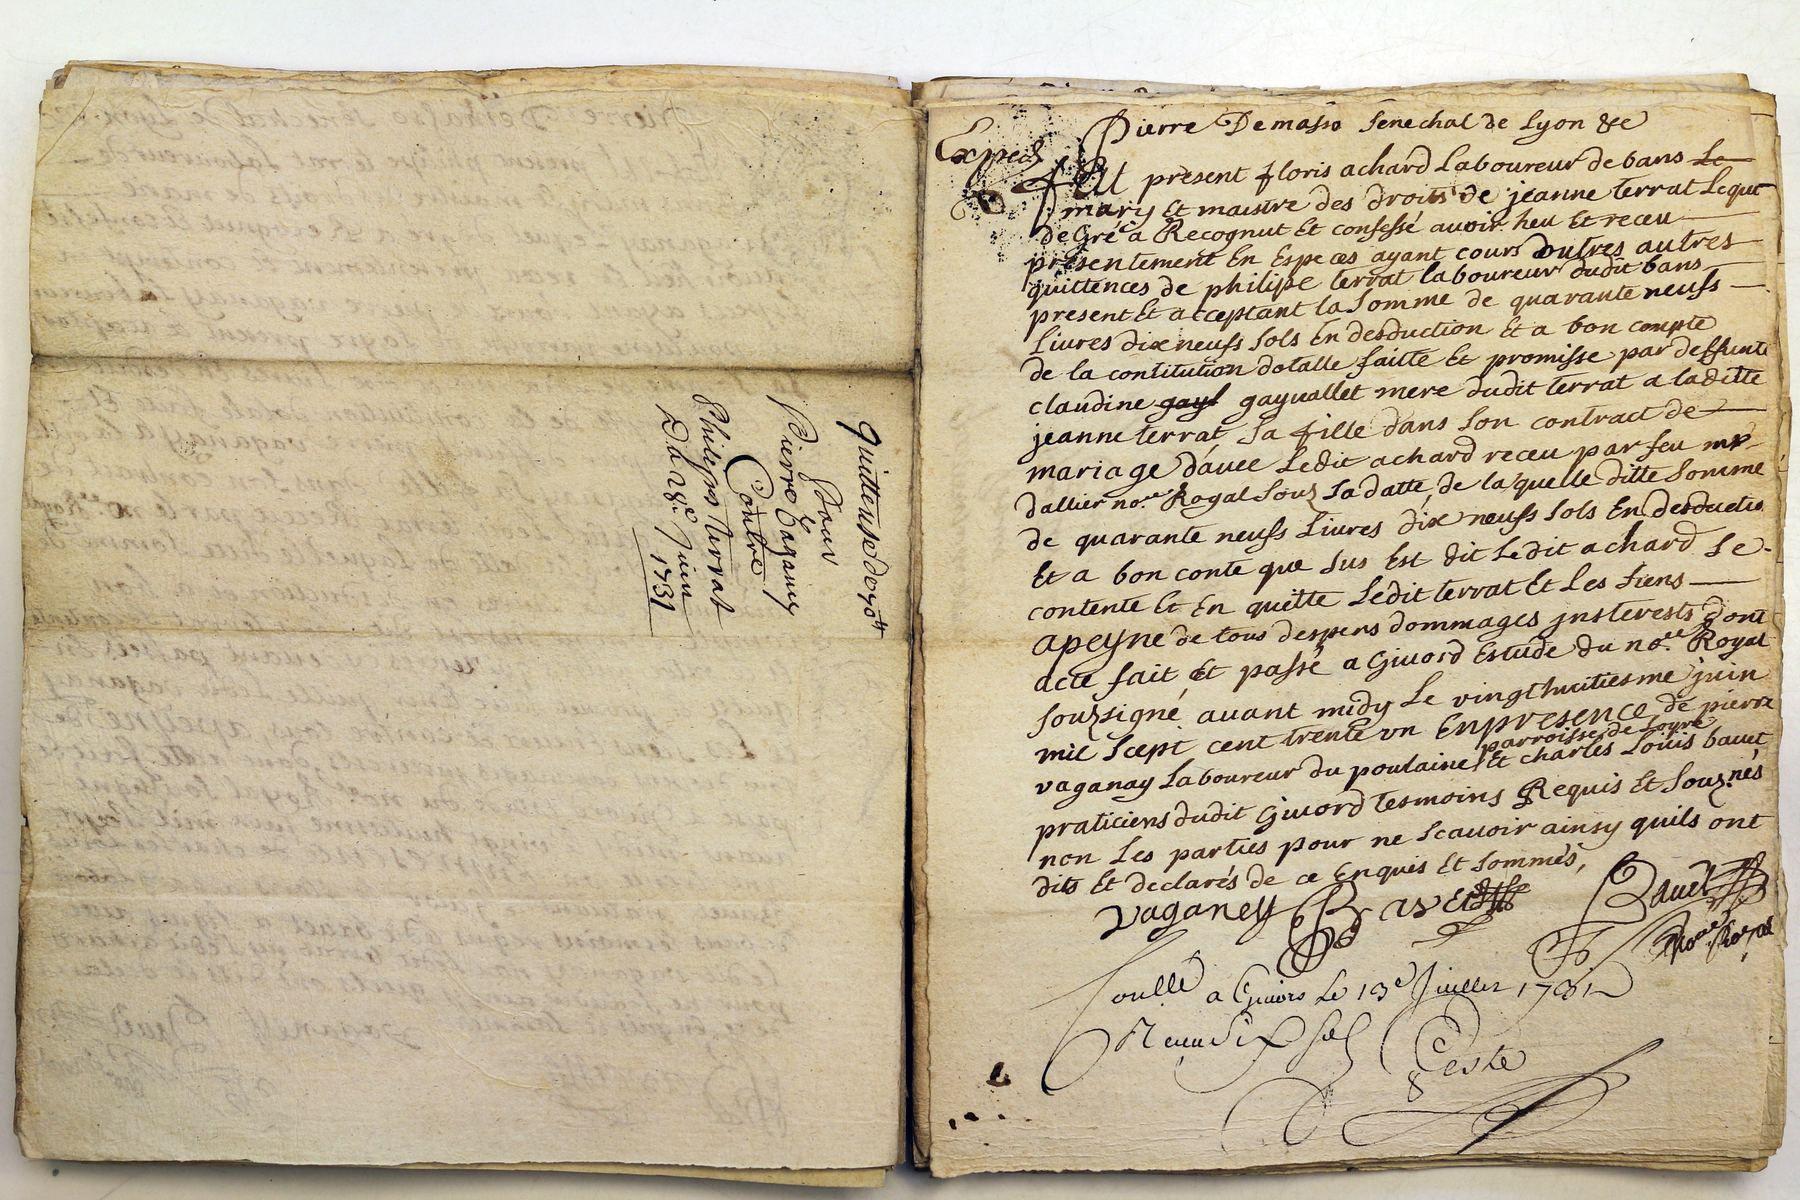 quittense de 90lt
Pour
Pierre Vaganay
Contre
Philippe terrat
Du 28e Juin
1731
Exped
Pierre Demasso Senechal de Lyon &c
Fut present floris achard Laboureur de bans Le
mary Et maistre des droits de jeanne terrat Lequel
de Gré a Recognut Et confessé auoir heu Et receu
presentement En Especes ayant cours outres autres
quittences de philipe terrat laboureur dudit bans
present Et acceptant la Somme de quarante neufs
Liures dix neufs Sols En desduction Et a bon compte
de la contitution dotalle faitte Et promisse par deffunte
claudine gayl gayuallet mere dudit terrat a laditte
jeanne terrat Sa fille dans Son contract de
mariage dauec Ledit achard receu par feu mr
dallier nore Royal Souz Sa datte, de la quelle ditte Somme
de quarante neufs Liures dix neufs Sols En desductio
Et a bon conte que Sus Est dit Ledit achard Se
contente Et En quitte Ledit terrat Et Les Siens
apeyne de tous despens dommages jnsterests dont
acte fait Et passé a Giuord Estude du nore Royal
Souzsigné auant midy Le vingthuitiesme juin
mil Scept cent trente vn En presence de pierre
vaganay Laboureur du poulaine parroisse de Loyre Et charles Louis bauet
praticiens dudit Giuord tesmoins Requis Et Souznés
non Les parties pour ne Scauoir ainsy quils ont
dits Et declarés de ce Enquis Et Sommés,
vaganey Bavet
Bauet
Nore Royal
Conllé a Giuors Le 13e Juillet 1731
R neuf Six Sol